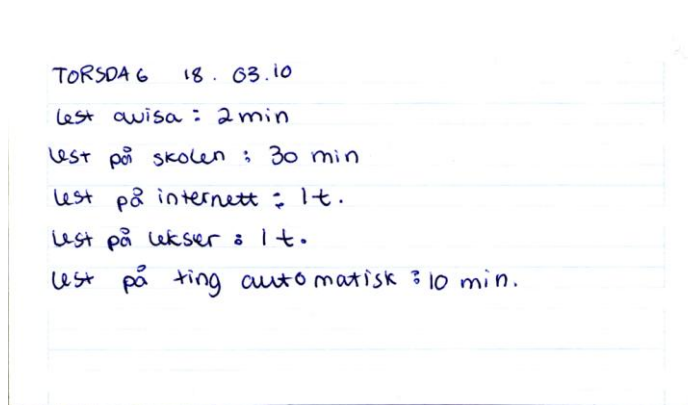 TORSDAG 18.03.10
lest avisa : 2 min
lest på skolen : 30 min
lest på internett : 1t.
lest på lekser : 1t.
lest på ting automatisk : 10 min.